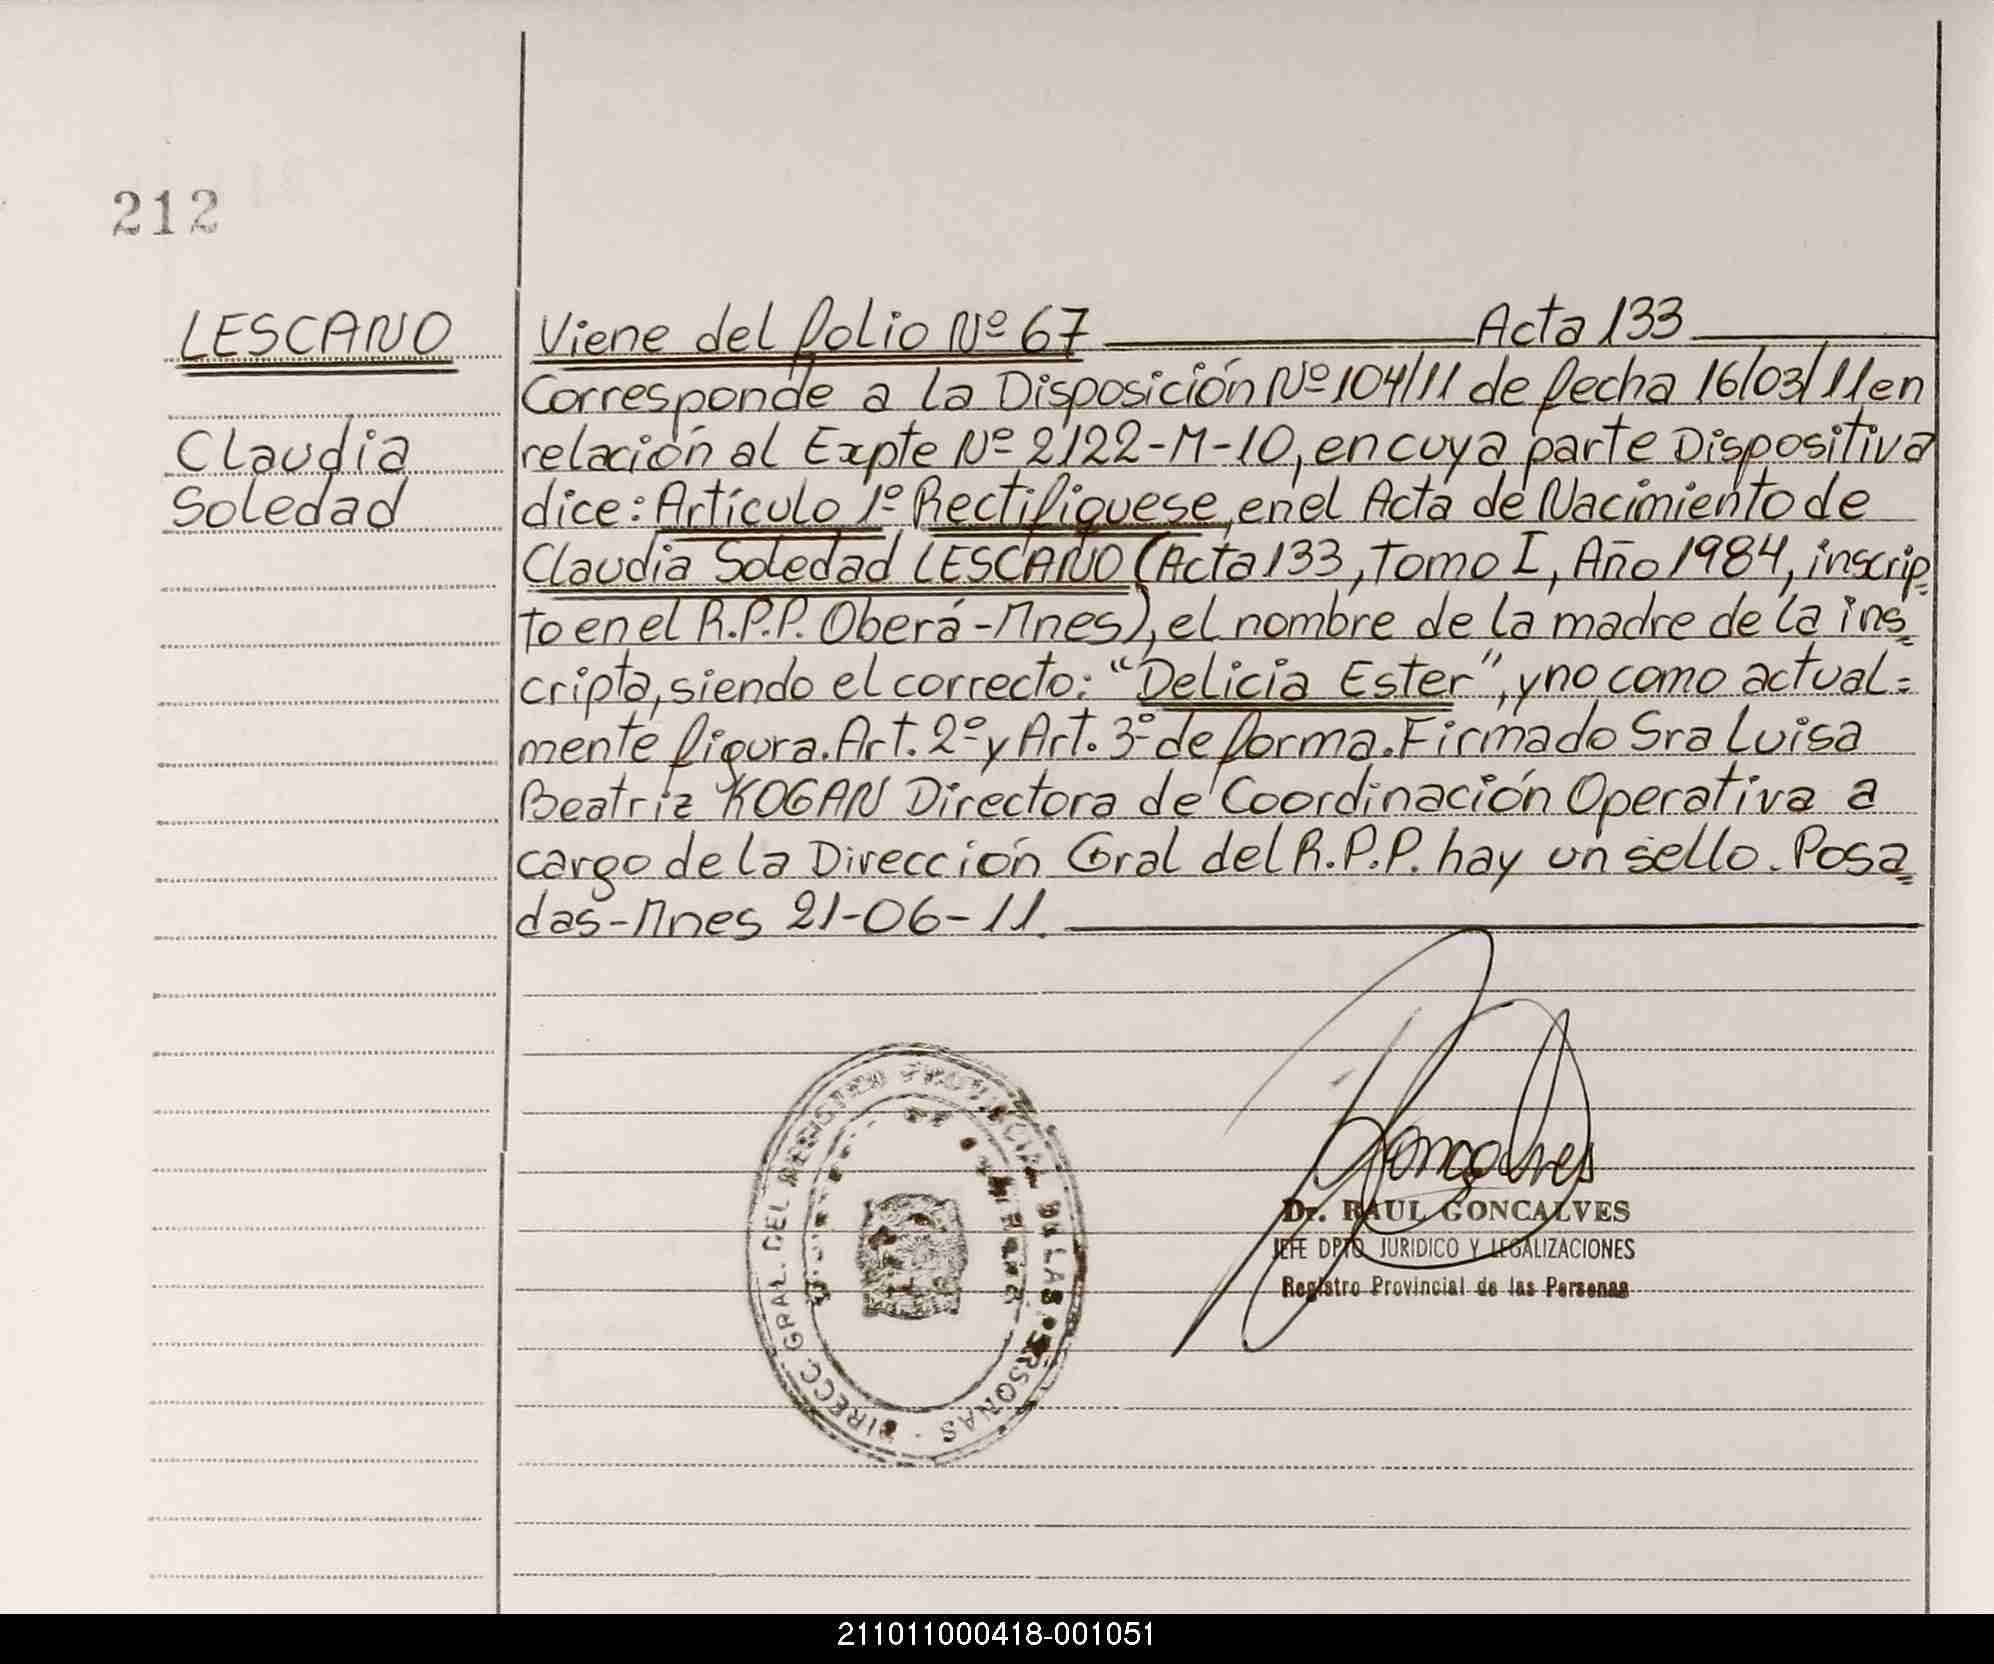 212
LESCANO
Claudia
Soledad
Viene del folio Nº 67 Acta 133
Corresponde a la Disposición Nº 104/11 de fecha 16/03/11 en
relación al Expte Nº 2122-M-10, en cuya parte Dispositiva
dice: Artículo 1º Rectifiquese, en el Acta de Nacimiento de
Claudia Soledad LESCANO (Acta 133, Tomo I, Año 1984, inscrip=
to en el R.P.P. Oberá-Mnes), el nombre de la madre de la ins=
cripta, siendo el correcto: "Delicia Ester", y no como actual=
mente figura. Art. 2º y Art. 3º de forma. Firmado Sra Luisa
Beatriz KOGAN Directora de Coordinación Operativa a
cargo de la Dirección Gral del R.P.P. hay un sello. Posa=
das-Mnes 21-06-11.
DIRECC. GRAL. DEL REGISTRO PROVINCIAL DE LAS PERSONAS
Goncalves
Dr. RAUL GONCALVES
JEFE DPTO JURIDICO Y LEGALIZACIONES
Registro Provincial de las Personas
211011000418-001051